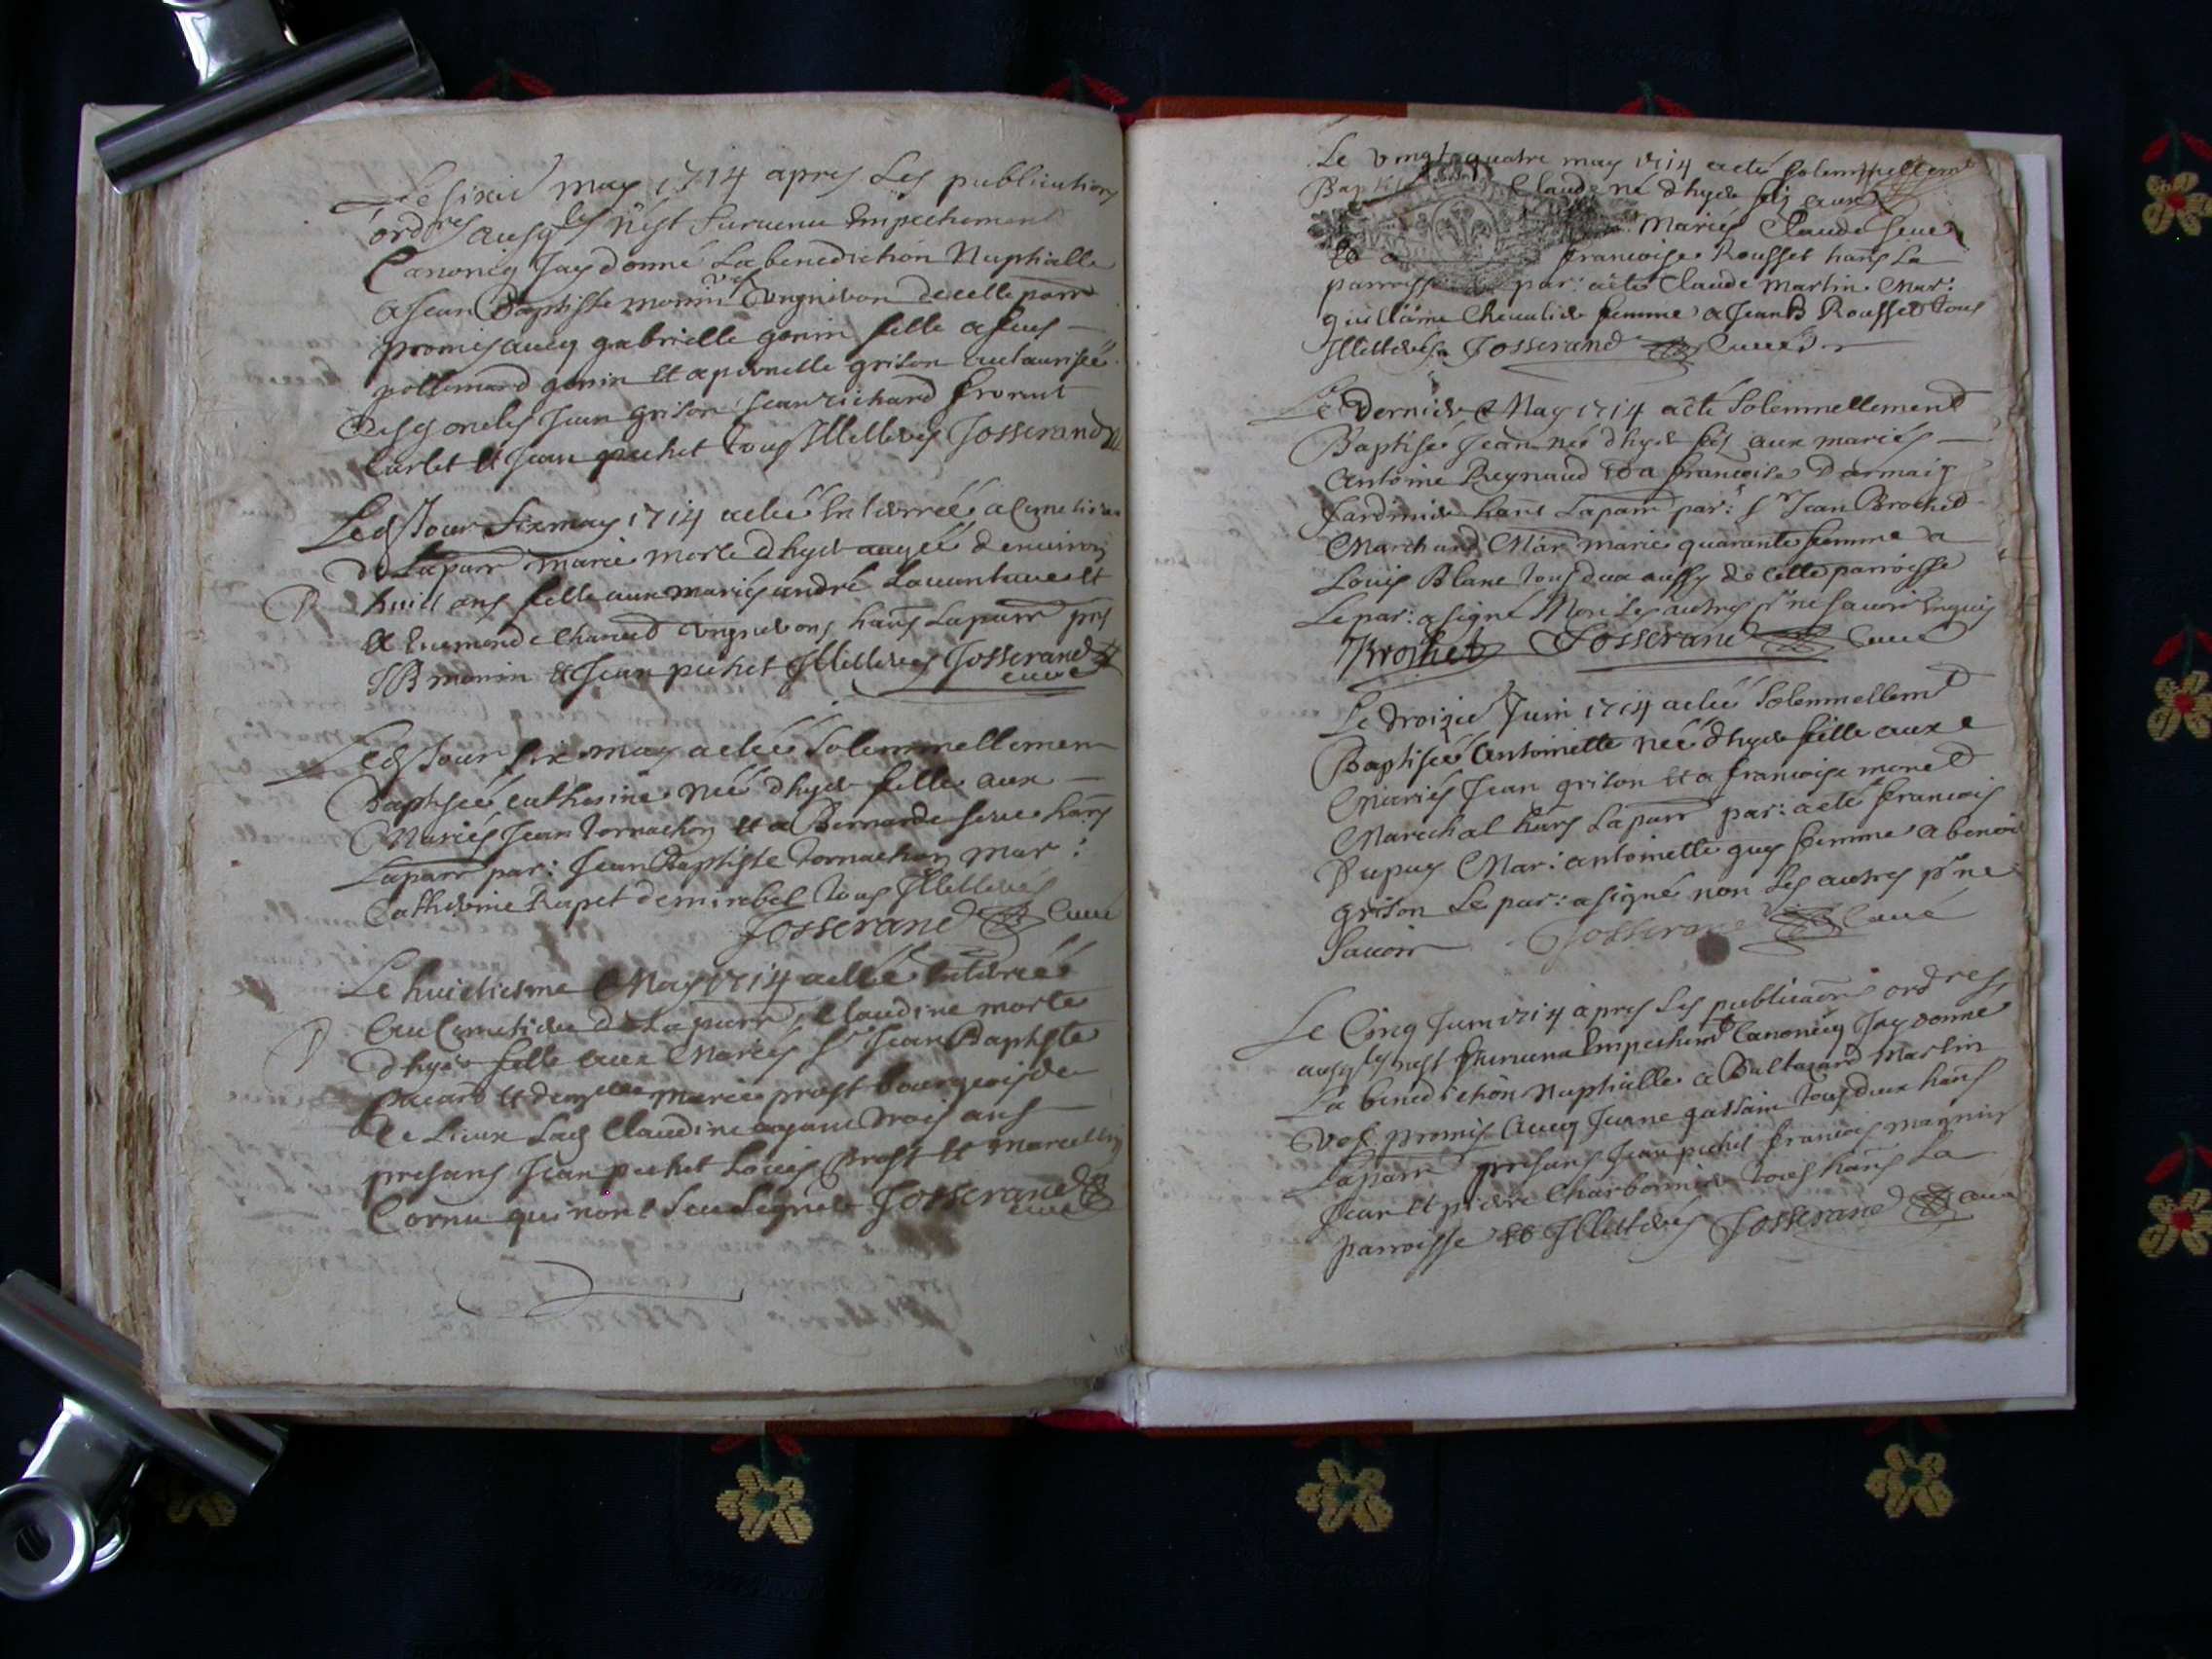 Le sixie may 1714 apres les publications
ordres ausqls n'est survenu Empechement
Canonicq Jay donné La benediction Nuptialle
a Jean Baptiste monin vef vigneron de cette parr
promis avec gabrielle genin fille a feus
genin et a pernelle grison authorisée
oncles Jean grison Jean richard
Carlet et Jean pechet tous Illitterés Josserand
Led Jour Six may 1714 a eté Enterrée a Cimetiere
de La parr marie morte d'hyer aagée d'environ
huict ans fille aux mariés andré Lavanture et
a vignerons hans La parr pns
JB monin et Jean pechet Illitterés Josserand
curé
Led Jour six may a eté Solemnellemen
Baptisée catherine née d'hyer fille aux
Mariés Jean tornachon et a Bernarde serve hans
La parr par: Jean Baptiste tornachon mar:
Catherine Rapet de mirebel tous Illitterés
Josserand Curé
Le huictiesme May 1714 a eté Enterrée
Au Cimetiere de La parr Claudine morte
d'hyer fille aux Mariés Sr Jean Baptiste
et demelle marie prost bourgeois de
Ce Lieux Lad Claudine ayant trois ans
presans Jean pechet Louis Prost et marcellin
Cornu qui n'ont Seu Signer Josserand
curé
Le vingt quatre may 1714 a eté Solemnellemt
Bap Claude né d'hyer fils aux
Mariés Claude serve
Et a francoise Rousset hans La
parroisse par: a eté Claude martin Mar:
guillame Chevalier femme a Jean B Rousset tous
Illitterés Josserand Curé
Le Dernier May 1714 a eté Solemnellement
Baptisé Jean né d'hyer fils aux mariés
Antoine Reynaud Et a francoise Darmais
Jardinier hans La parr par: Sr Jean Brochet
Marchand Mar marie quarante femme a
Louis Blanc tous deux aussy de cette parroisse
Le par: a signé Non Les autres pr ne savoir Enquis
Brochet Josserand Curé
Le troizie Juin 1714 a eté Solemnellemt
Baptisée Antoinette née d'hyer fille aux
Mariés Jean grison et a francoise monet
Marechal hans La parr par: a eté francois
Dupuy Mar: antoinette guy femme a benoi
grison Le par: a signé non Les autres pr ne
Savoir Josserand Curé
Le Cinq Juin 1714 apres Les publicaons ordres
ausqls n'est survenu Empechemt Canonicq Jay donné
La benediction Nuptialle a Baltazard Martin
vef. promis Avecq Jeanne gassain tous deux hans
La parr presans Jean pechet francois magnin
Jean et pierre Charbonnier tous hans La
parroisse et Illitterés Josserand curé